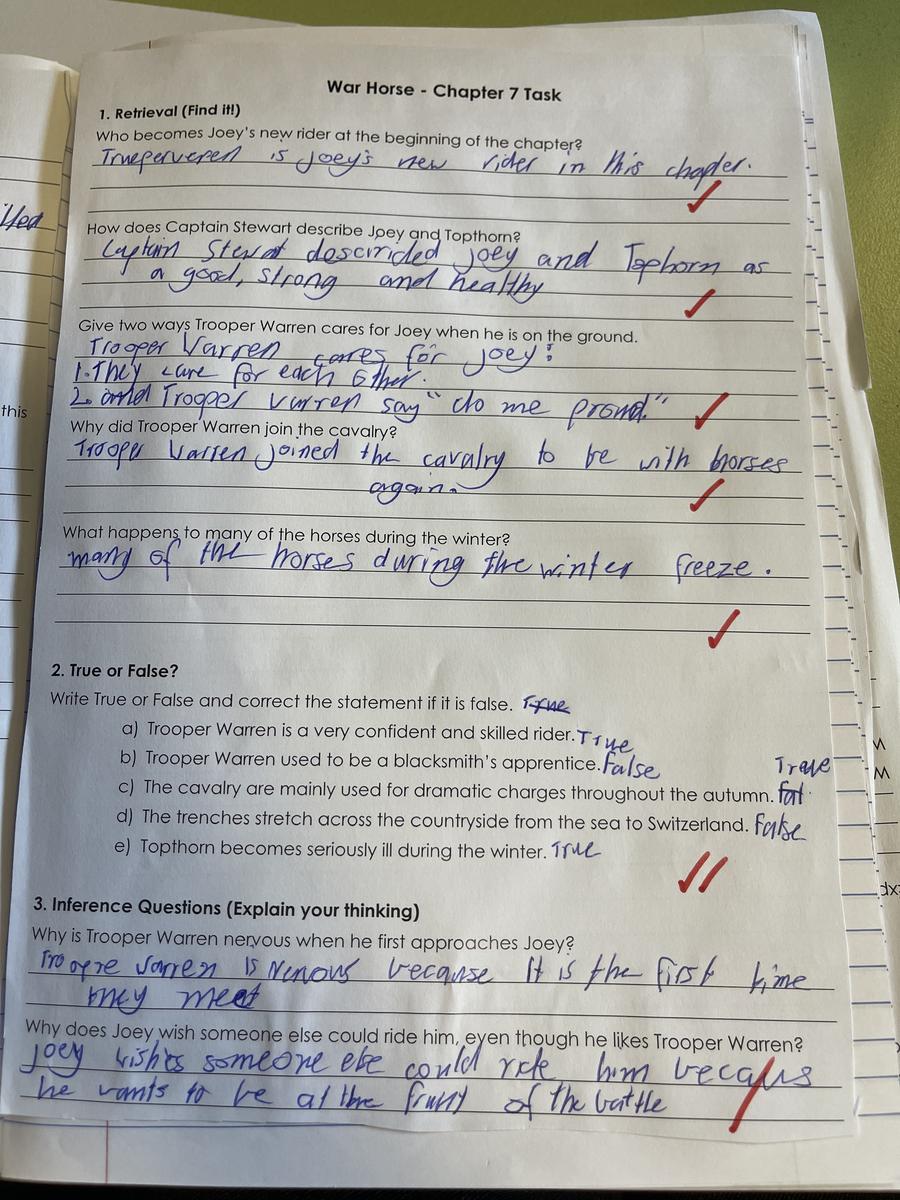 War Horse - Chapter 7 Task
1. Retrieval (Find it!)
Who becomes Joey's new rider at the beginning of the chapter?
is Joey's new rider in this chapter.
How does Captain Stewart describe Joey and Topthorn?
Captain Stewat descirided Joey and Tophorn as
a good, strong and healthy
Give two ways Trooper Warren cares for Joey when he is on the ground.
Trooper Varren cares for Joey:
1. They care for each other.
2. Trooper varren say "do me proud."
Why did Trooper Warren join the cavalry?
Trooper Varren joined the cavalry to be with horses
again.
What happens to many of the horses during the winter?
many of the horses during the winter freeze.
2. True or False?
Write True or False and correct the statement if it is false. True
a) Trooper Warren is a very confident and skilled rider. True
b) Trooper Warren used to be a blacksmith's apprentice. False
True
c) The cavalry are mainly used for dramatic charges throughout the autumn.
d) The trenches stretch across the countryside from the sea to Switzerland. False
e) Topthorn becomes seriously ill during the winter. True
3. Inference Questions (Explain your thinking)
Why is Trooper Warren nervous when he first approaches Joey?
Varren is Nervous because it is the first time
they meet
Why does Joey wish someone else could ride him, even though he likes Trooper Warren?
Joey wishes someone else could ride him becaus
he wants to be at the frunt of the battle
this